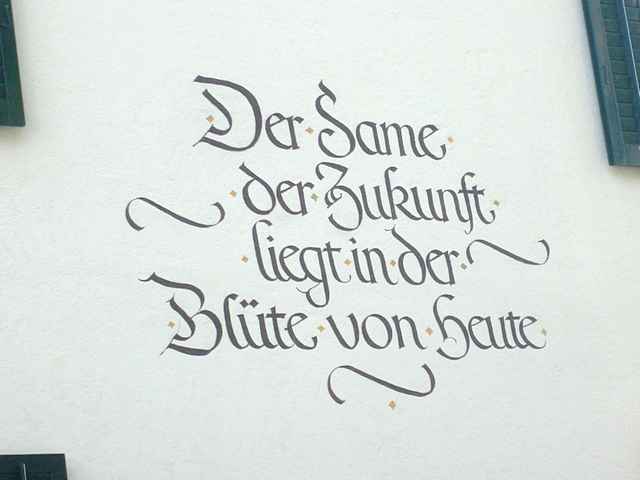 Der Same
der Zukunft
liegt in der
Blüte von heute